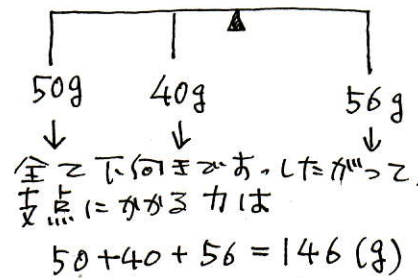 50g 40g 56g
↓ ↓ ↓
全て下向きです。したがって、
支点にかかる力は
50+40+56=146(g)